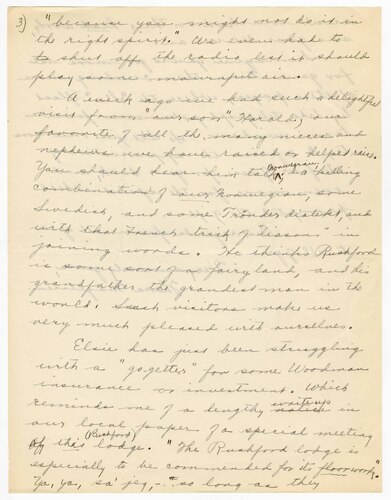 3) "because you might not do it in
the right spirit." We even had to
to shut off the radio lest it should
play some mournful air.
A week ago we had such a delightful
visit from "our son" Harald, our
favorite of all the many nieces and
nephews we have raised or helped raise.
You should hear him talk Norwegian, - A killing
combination of our Norwegian, some
Swedish, and some Trönder dialekt, and
with that French trick of "liason" in
joining words. He thinks Rushford
is some sort of a fairyland, and his
grandfather the grandest man in the
world. Such visitors make us
very much pleased with ourselves.
Elsie has just been struggling
with a "go-getter" for some Woodman
insurance or investment. Which
reminds me of a lengthy write up in
our local paper of a special meeting
of that (Rushford) lodge. "The Rushford lodge is
especially to be commended for its floorwork."
Ya, ya, sa' jeg, - "so long as they